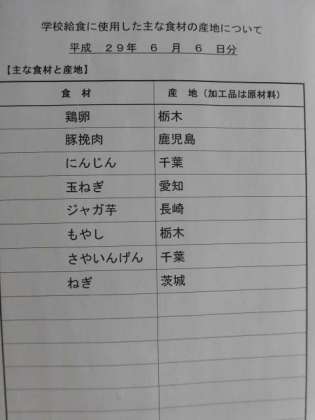 学校給食に使用した主な食材の産地について
平成 29年 6 月 6 日分
【主な食材と産地】
食 材 産 地（加工品は原材料）
鶏卵 栃木
豚挽肉 鹿児島
にんじん 千葉
玉ねぎ 愛知
ジャガ芋 長崎
もやし 栃木
さやいんげん 千葉
ねぎ 茨城